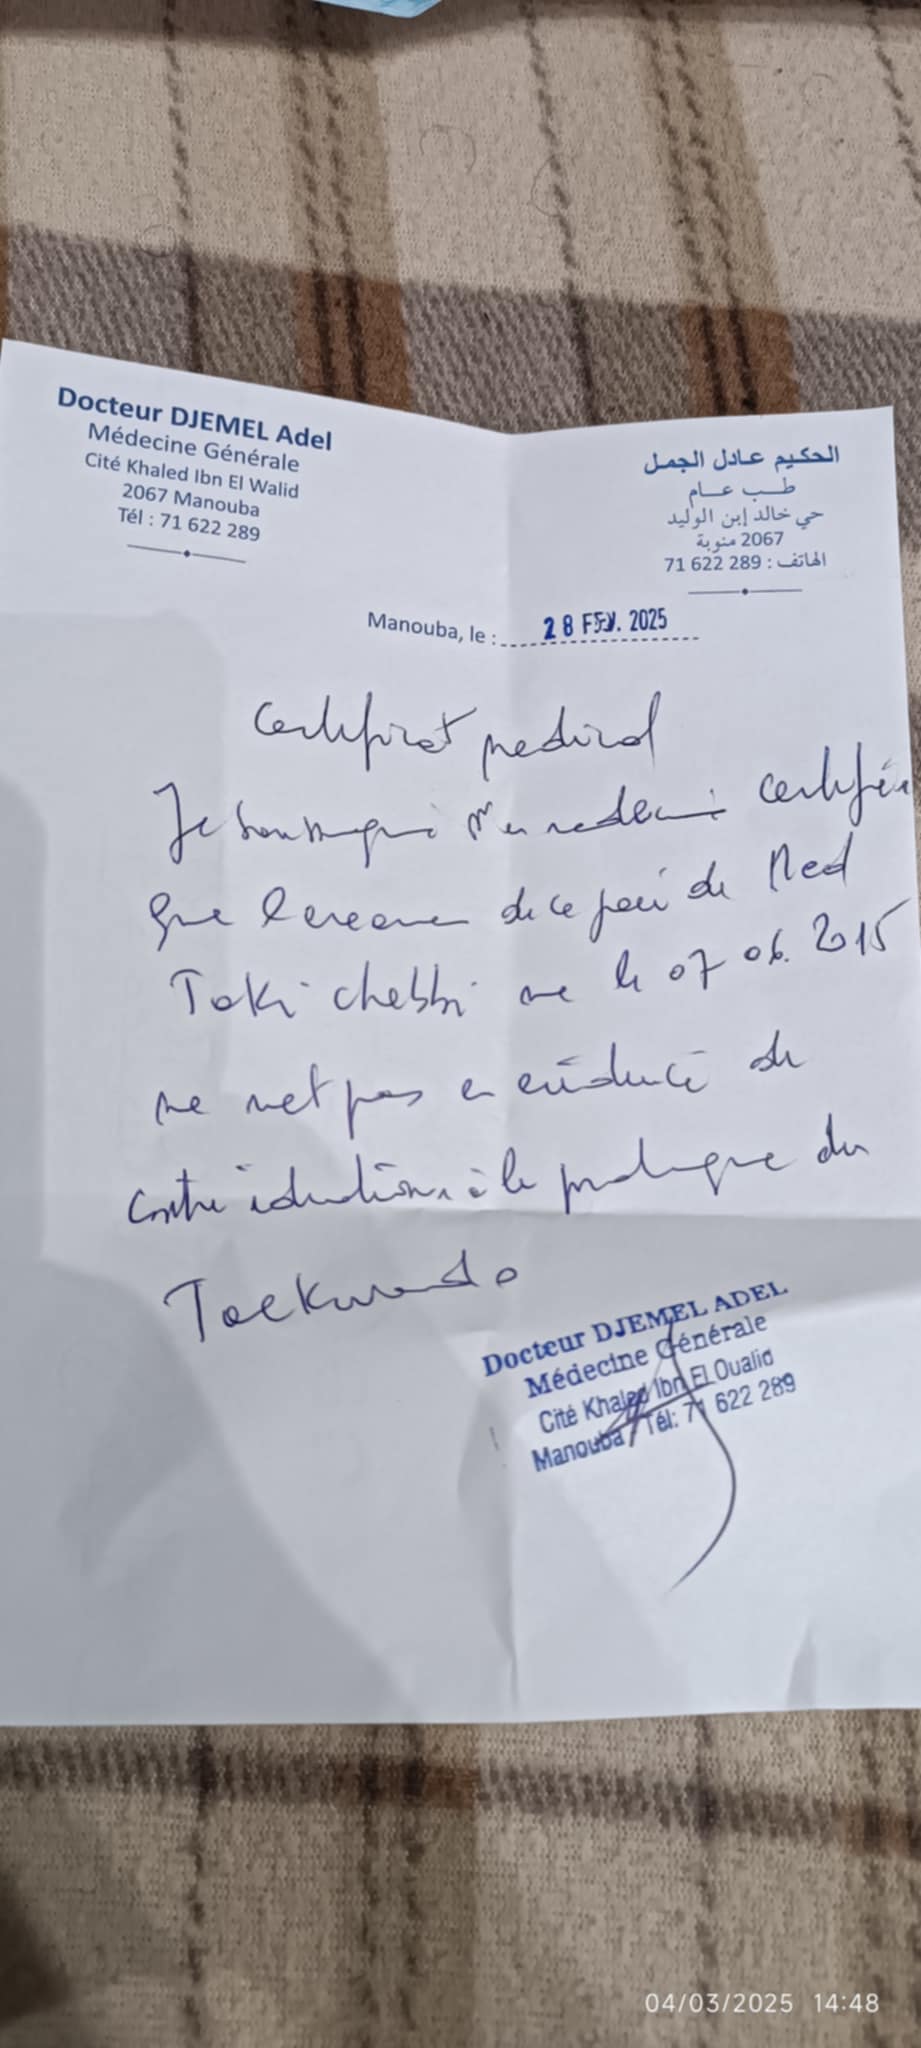 Docteur DJEMEL Adel
Médecine Générale
Cité Khaled Ibn El Walid
2067 Manouba
Tél : 71 622 289
الحكيم عادل الجمل
طب عام
حي خالد إبن الوليد
2067 منوبة
الهاتف : 289 622 71
Manouba, le : 28 FEV. 2025
Certificat medical
Je soussigné certifie
que l'examen de ce jour de Med
Taki chebbi né le 07 06. 2015
ne met pas en évidence de
contre indications à la pratique du
Taekwondo
Docteur DJEMEL ADEL
Médecine Générale
Cité Khaled Ibn El Oualid
Manouba Tél: 71 622 289
04/03/2025 14:48